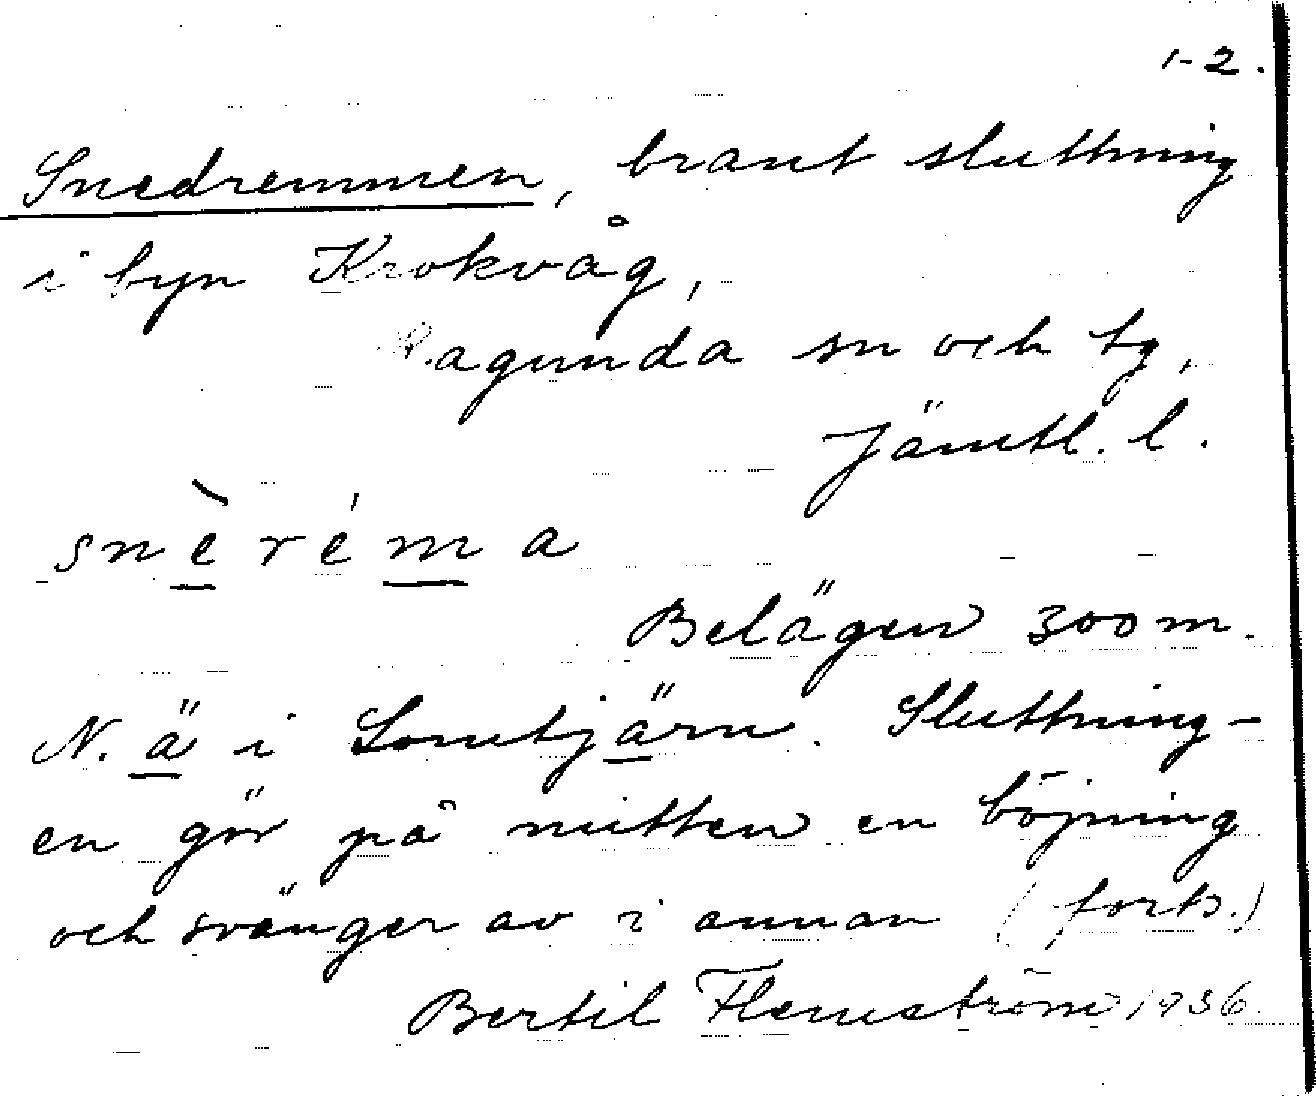 1-2.
Snedremmen, brant sluttning
i byn Krokvåg,
Ragunda sn och tg,
Jämtl. l.
snèréma
Belägen 300 m.
N. ä i Lomtjärn. Sluttning-
en gör på mitten en böjning
och svänger av i annan (forts.)
Bertil Flemström 1936.